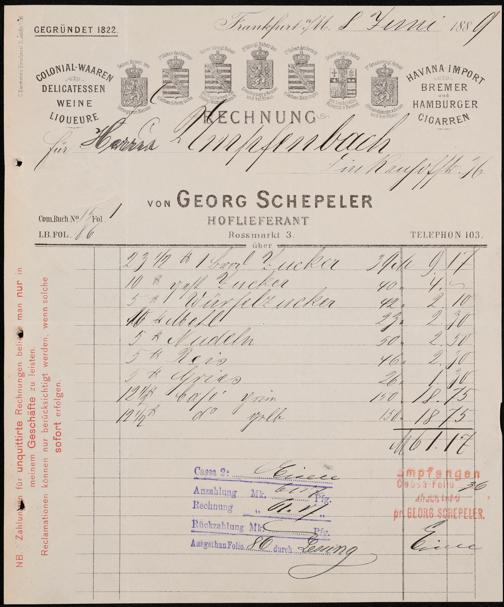 GEGRÜNDET 1822.
Frankfurt a/M. 8 Juni 1889
COLONIAL-WAAREN
DELICATESSEN
WEINE
LIQUEURE
HAVANA-IMPORT
BREMER
und
HAMBURGER
CIGARREN
RECHNUNG
für Herrn Umpfenbach
VON GEORG SCHEPELER
HOFLIEFERANT
Rossmarkt 3.
über
Com. Buch No. Fol 1
I.B. FOL. 86
TELEPHON 103.
23 1/2 ℔ 1 Brod Zucker 39 9.17
10 ℔ Zucker 40. 4.-
5 ℔ Würfelzucker 42. 2.10
Mehl 23. 2.30
5 ℔ Nudeln 50. 2.50
5 ℔ Reis 46. 2.30
5 ℔ Gries 26. 1.30
12 1/2 ℔ Café grün 150. 18.75
12 1/2 ℔ do gelb 150. 18.75
M 61.17
Cassa 2:
Anzahlung Mk. Pfg.
Rechnung " 61.17 "
Rückzahlung Mk. Pfg.
Ausgethan Folio 86 durch
Empfangen
Cassa-Folio 36
pr GEORG SCHEPELER.
NB Zahlungen für unquittirte Rechnungen beliebe man nur in
meinem Geschäfte zu leisten.
Reclamationen können nur berücksichtigt werden, wenn solche
sofort erfolgen.